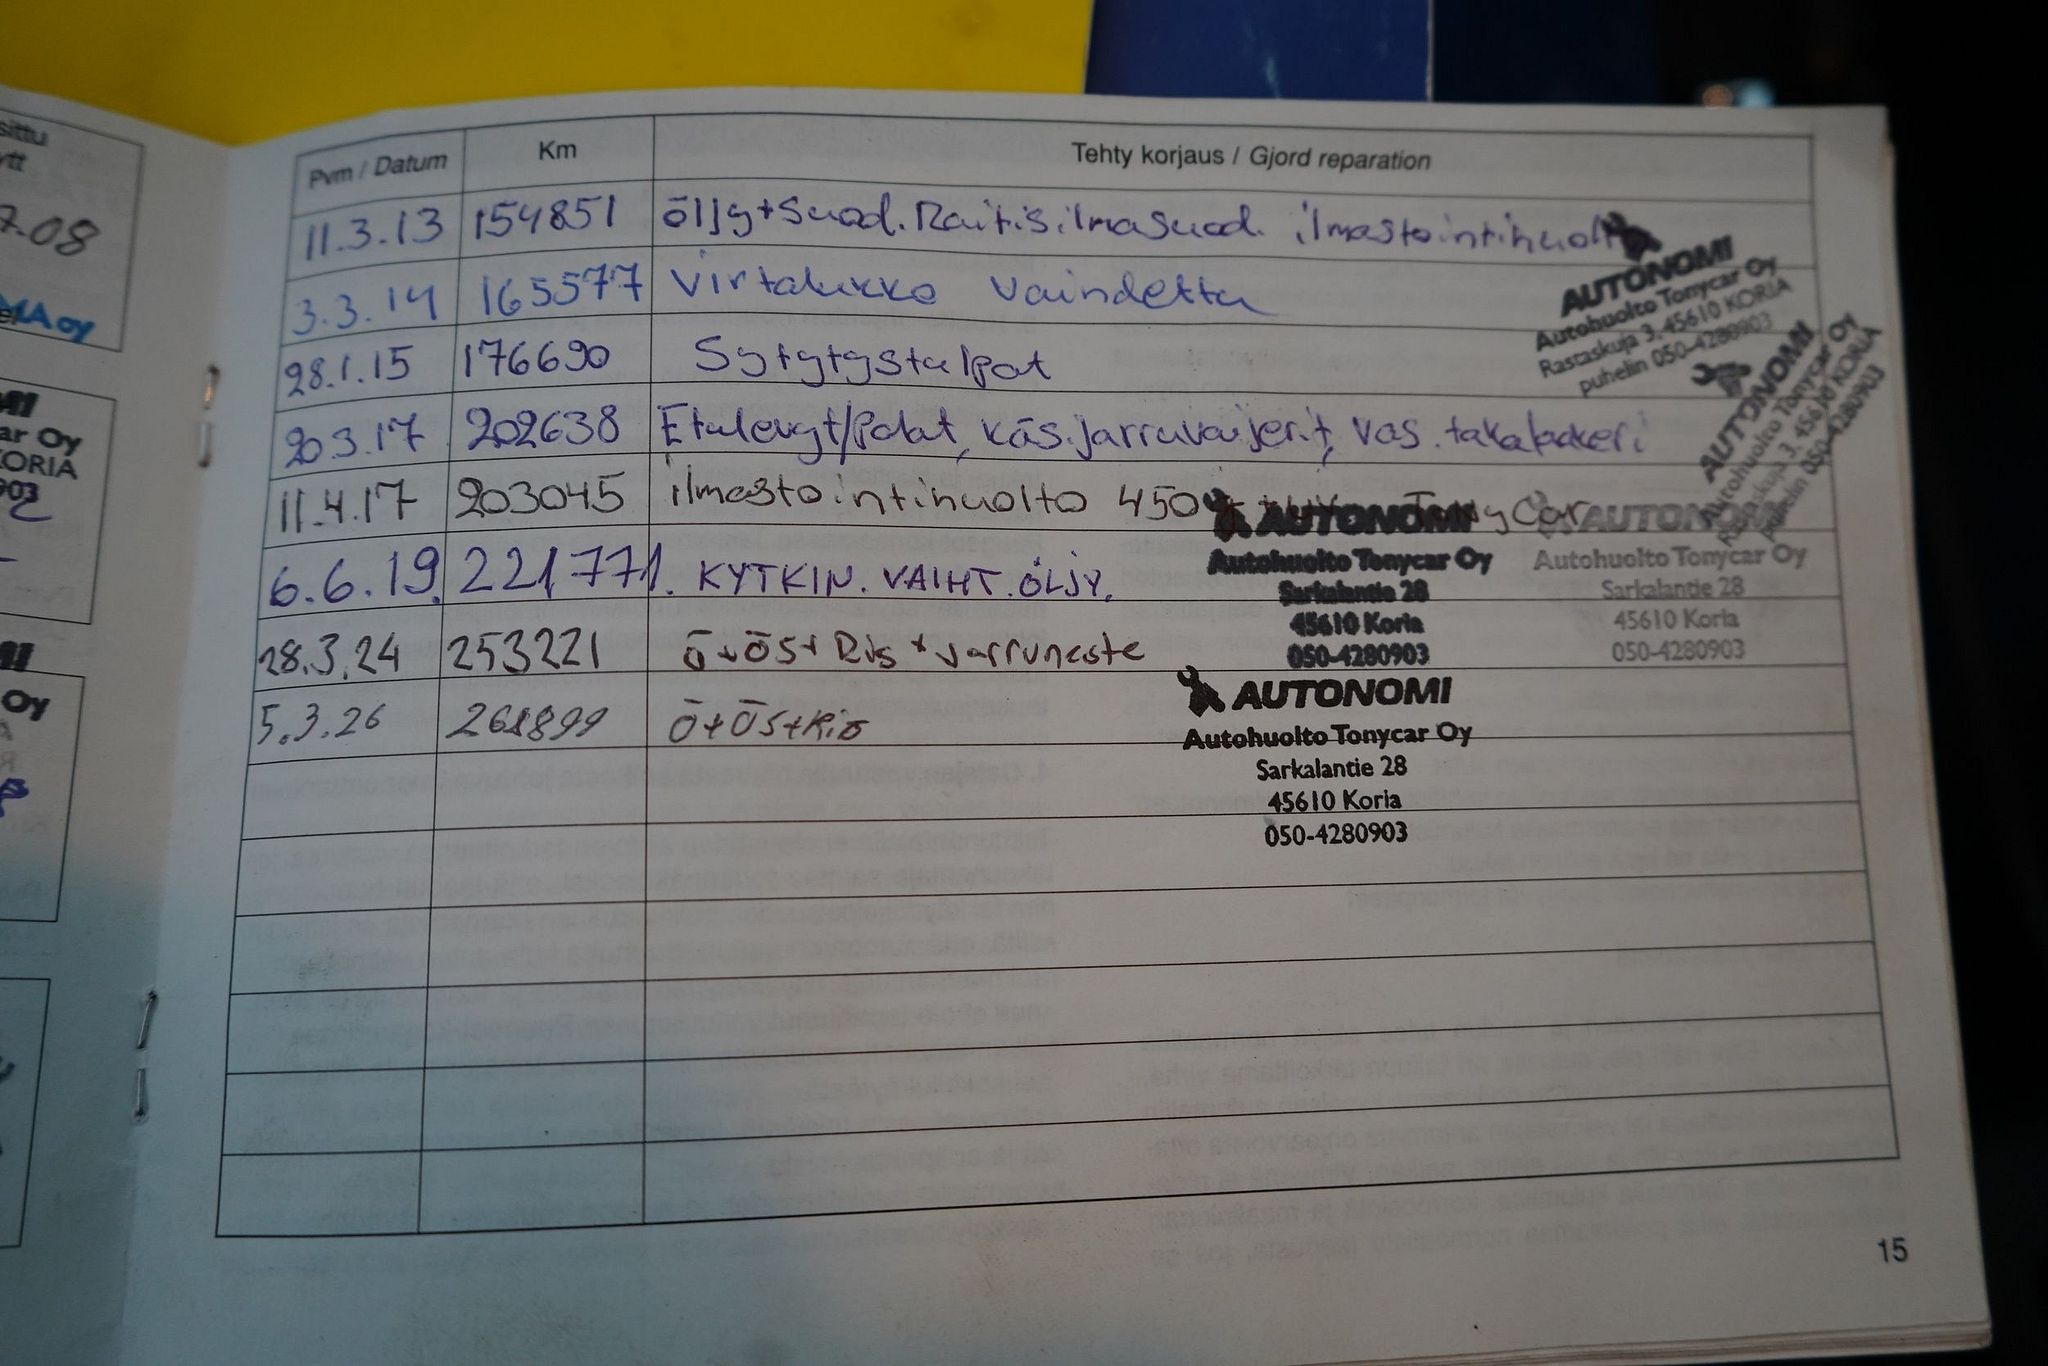 sittu
ytt
7.08
MA oy
MI
ar Oy
KORIA
903
Oy
Pvm / Datum Km Tehty korjaus / Gjord reparation
11.3.13 154851 öljy+suod. Raitisilmasuod. ilmastointihuolto
3.3.14 165577 Virtalukko vaihdettu
28.1.15 176690 Sytytystulpat
20.3.17 202638 Etulevyt/Palat, käs.jarruvaijerit, vas. takalaakeri
11.4.17 203045 ilmastointihuolto 450g TonyCar
6.6.19. 221771. KYTKIN. VAIHT. ÖLJY.
28.3.24 253221 Ö+ÖS+Ris+jarruneste
5.3.26 261899 Ö+ÖS+Ris
AUTONOMI
Autohuolto Tonycar Oy
Rastaskuja 3, 45610 KORIA
puhelin 050-4280903
AUTONOMI
Autohuolto Tonycar Oy
Rastaskuja 3, 45610 KORIA
puhelin 050-4280903
AUTONOMI
Autohuolto Tonycar Oy
Sarkalantie 28
45610 Koria
050-4280903
AUTONOMI
Autohuolto Tonycar Oy
Sarkalantie 28
45610 Koria
050-4280903
AUTONOMI
Autohuolto Tonycar Oy
Sarkalantie 28
45610 Koria
050-4280903
15